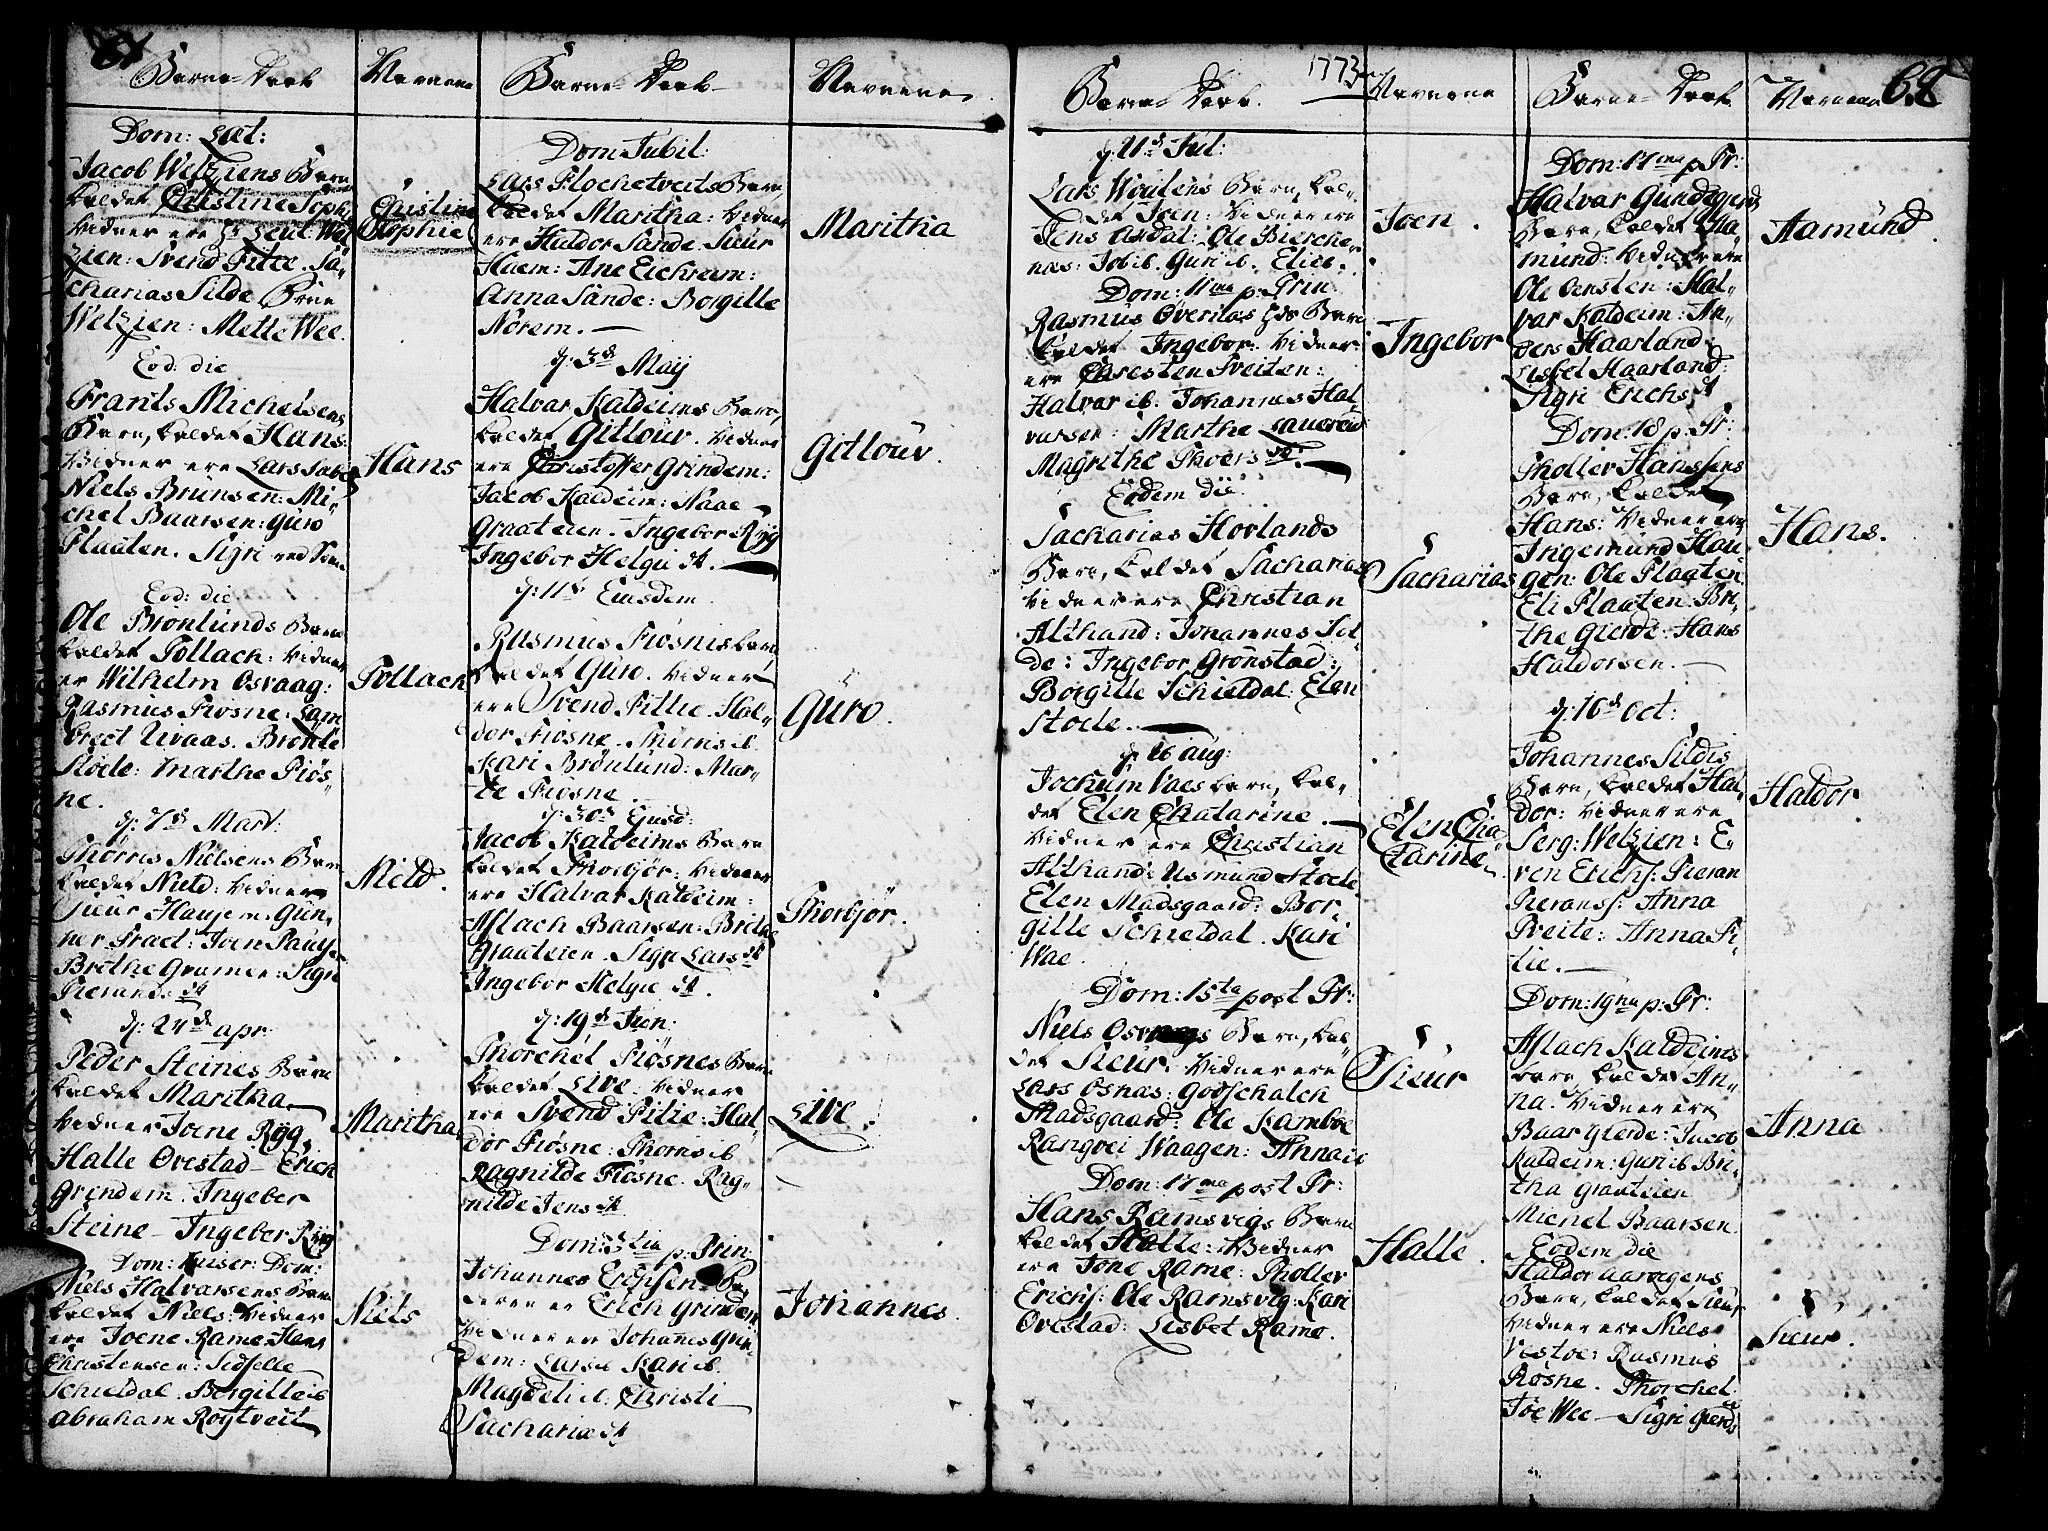 Barne-Daab
Navnene
Dom: Sext:
Jacob Weltziens Barn
kaldet Christine Soph:
Vidner ere Hr Leut: Wel
zien: Svend Fitte. Sa-
charias Silde, Frue
Weltzien: Mette Wee.
Christine
Sophie
Eod: die
Frants Michelsens
Barn, kaldet Hans:
Vidner ere Lars
Niels Brunsen: Mi-
chel Baarsen: Guro
Plaaten. Sigri
Hans
Eod: die
Ole Brønlunds Barn
kaldet Tollach: Vidner
er Wilhelm Osvaag:
Rasmus Fiøsne: Lam
brect Uvaas. Brønle
Støele: Marthe Fiøs-
ne.
Tollach
d: 7de Mart:
Thørris Nielsens Barn
kaldet Nield: Vidner
Sieur Haujem: Gun-
ner Joen
Brethe Sigri
Pieranda dt
Nield.
d: 27de apr:
Peder Steines Barn
kaldet Maritha
Vidner Joene Rÿg,
Halle Ørestad Erich
Grindem. Ingeber
Steine Ingebor Rÿg
Maritha
Dom: Miser: Dom:
Niels Halvarsens Barn
kaldet Niels: Vidner
ere Joene Rame: Hans
Christensen: Sidselle
Schieldal. Borgille ib
Abraham Rogtveit
Niels
Barne-Daab
Navnene
Dom: Jubil:
Lars Flochetveits Barn,
kaldet Maritha: Vidner
ere Haldor Sande. Sieur
Huem: Ane Eichrem:
Anna Sande: Borgille
Norem.
Maritha
d: 3de Maÿ
Halvar Kaldeims Barn,
kaldet Gitlouv. Vidner
ere Christoffer Grindem:
Jacob Kaldeim: Naae
Graateien. Ingebor Rÿg
Ingebor Helgie dt.
Gitlouv.
d: 11te Eiusdem.
Rasmus Fiøsnis barn
kaldet Guro. Vidner
ere Svend Fittie. Hal-
dor Fiøsne. Thørris ib.
Kari Brønlund: Mar-
te Fiøsne.
Guro.
d: 30te Ejusd:
Jacob Kaldeims Barn
kaldet Thorbjør: Vidner
ere Halvar Kaldeim:
Aslach Baarsen: Brithe
Graateien. Sigri Lars dt
Ingebor Helgie dt.
Thorbjør.
d: 19de Jun:
Thorchel Fiøsnes Barn
kaldet Live: Vidner
ere Svend Fitie: Hal-
dor Fiøsne: Thørris ib
Ragnilde Fiøsne. Rag-
nilde Jens dt
Live.
Dom: 3tia p: Trin:
Johannes
er Erich Grindem
Vidner er Johannes Grin-
dem: Lars ib Kari ib.
Magdeli ib: Christi
Sachariæ dt
Johannes.
1773
Barne-Daab.
Navnene
d. 21de Jul:
Lars Barn, kal-
det Joen: Vidner ere
Jens Asdal: Ole Bierche-
nes: Job ib. Guri ib. Eli ib.
Joen.
Dom: 11ma p: Trin:
Rasmus Øvernes Barn
kaldet Ingebor: Vidner
ere Christen Tveiten:
Halvar ib. Johannes Hal
varsen: Marthe
Magrethe dt.
Ingebor
Eodem die.
Sacharias Hovlands
Barn, kaldet Sacharias
Vidner ere Christian
Althand: Johannes Sil
de: Ingebor Grønstad:
Borgille Schieldal: Elen
Støele.
Sacharias
d. 26 aug:
Jochum Vaes barn, kal-
det Elen Chatarine.
Vidner ere Christian
Althand: Asmund Støele
Elen Madsgaard: Bor-
gille Schieldal. Kari
Wae.
Elen Cha-
tarine.
Dom: 15ta post Tr:
Niels Osvaags Barn, kal-
det Sieur. Vidner ere
Lars Osnas: Godschalch
Madsgaard: Ole Kamboe
Rangvei Waagen: Anna ib
Sieur
Dom: 17ma post Tr:
Hans Ramsvigs Barn
kaldet Halle: Vidner
ere Jone Rame: Tholler
Erichs: Ole Ramsvig: Kari
Ørestad: Lisbet Rame.
Halle.
Barne-Daab.
Navnene
68
Dom: 17ma p: Tr:
Halvar
Barn, kaldet Aa-
mund: Vidner ere
Ole Hal-
var Kaldeim: An-
ders Haarland
Lisbet Haarland:
Sigri Erichs dt
Aamund.
Dom: 18 p: Tr:
Tholler Hanssens
Barn, kaldet
Hans: Vidner ere
Ingemund Hau-
gen: Ole Plaaten
Eli Plaaten: Bri-
the Gierde: Hans
Haldorsen.
Hans.
d: 16de Oct:
Johannes Sildis
Barn, kaldet Hal-
dor: Vidner ere
Serg: Weltzien: E-
ven Erichs: Pieran
Pierans: Anna
Tveite: Anna Fi-
tie.
Haldor
Dom: 19na p: Tr:
Aslach Kaldeimes
barn, kaldet An-
na. Vidner ere
Baar Gierde: Jacob
Kaldeim: Guri ib Bri-
tha Graateien
Michel Baarsen
Anna
Eodem die
Haldor Aarvegens
Barn, kaldet Sieur
Vidner ere Niels
Vestøe: Rasmus
Fiøsne. Thorchel:
Joe Wee Sigri Gierde
Sieur.